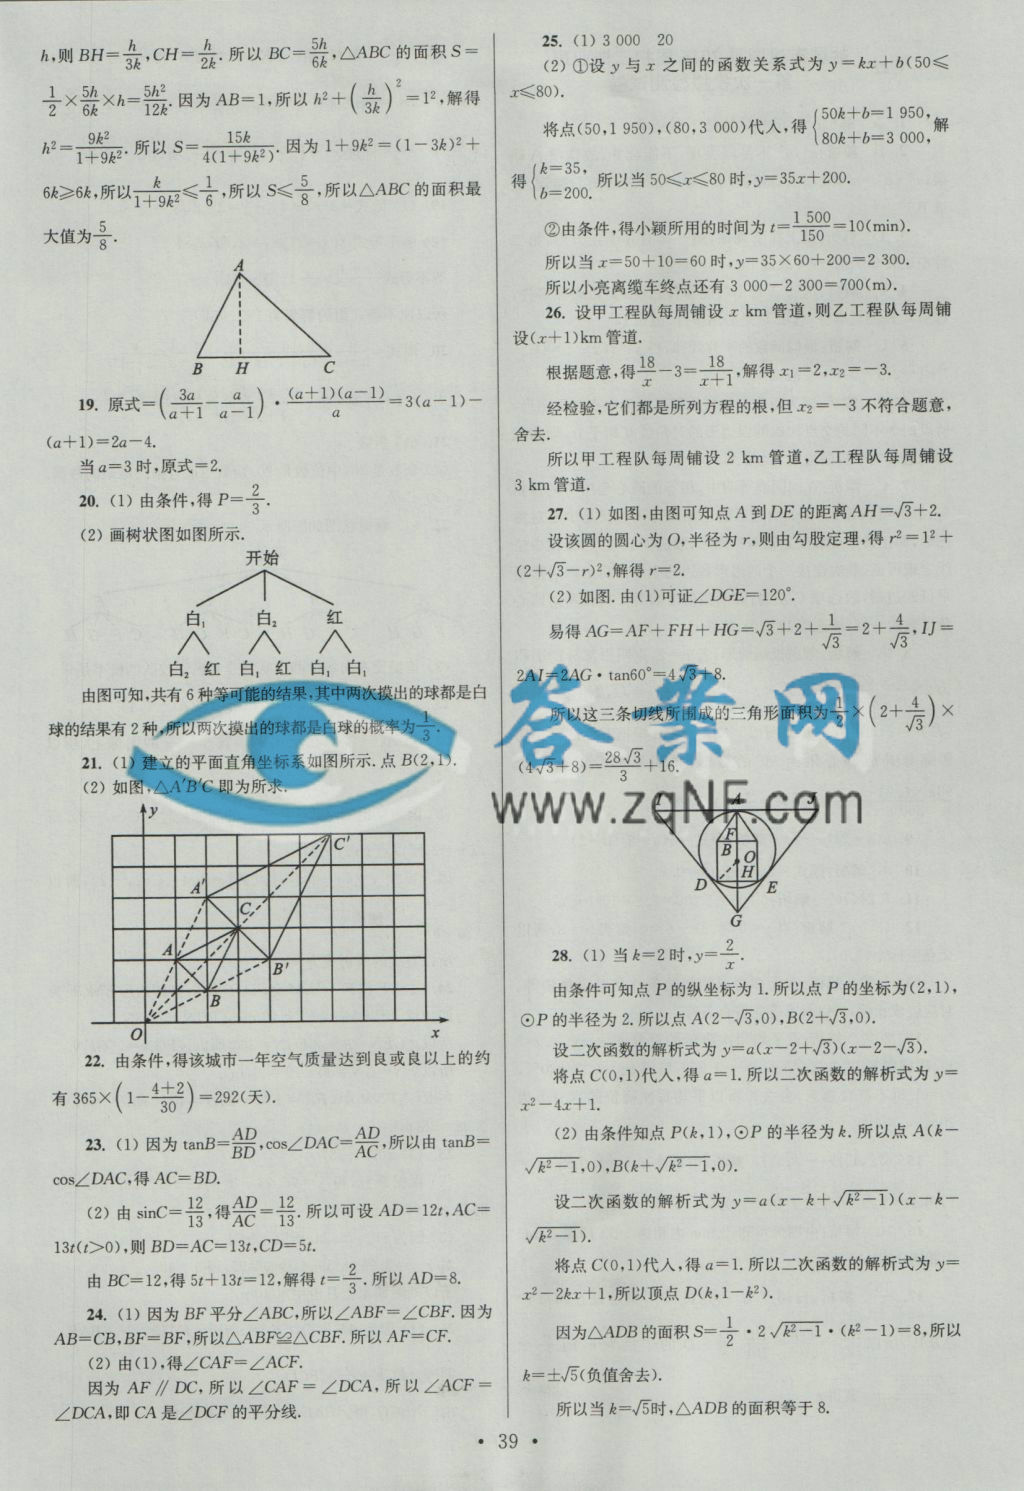 h,则BH=h/3k,CH=h/2k.所以BC=5h/6k,△ABC的面积S=
1/2×5h/6k×h=5h²/12k.因为AB=1,所以h²+(h/3k)²=1²,解得
h²=9k²/1+9k².所以S=15k/4(1+9k²).因为1+9k²=(1-3k)²+
6k≥6k,所以k/1+9k²≤1/6,所以S≤5/8,所以△ABC的面积最
大值为5/8.
A
B H C
19. 原式=(3a/a+1-a/a-1)·(a+1)(a-1)/a=3(a-1)-
(a+1)=2a-4.
当a=3时,原式=2.
20. (1) 由条件,得P=2/3.
(2) 画树状图如图所示.
开始
白₁ 白₂ 红
白₂ 红 白₁ 红 白₁ 白₁
由图可知,共有6种等可能的结果,其中两次摸出的球都是白
球的结果有2种,所以两次摸出的球都是白球的概率为1/3.
21. (1) 建立的平面直角坐标系如图所示.点B(2,1).
(2) 如图,△A′B′C′即为所求.
y
C′
A′
C
A
B′
B
O x
22. 由条件,得该城市一年空气质量达到良或良以上的约
有365×(1-4+2/30)=292(天).
23. (1) 因为tanB=AD/BD,cos∠DAC=AD/AC,所以由tanB=
cos∠DAC,得AC=BD.
(2) 由sinC=12/13,得AD/AC=12/13.所以可设AD=12t,AC=
13t(t>0),则BD=AC=13t,CD=5t.
由BC=12,得5t+13t=12,解得t=2/3.所以AD=8.
24. (1) 因为BF平分∠ABC,所以∠ABF=∠CBF.因为
AB=CB,BF=BF,所以△ABF≌△CBF.所以AF=CF.
(2) 由(1),得∠CAF=∠ACF.
因为AF∥DC,所以∠CAF=∠DCA,所以∠ACF=
∠DCA,即CA是∠DCF的平分线.
25. (1) 3 000 20
(2) ①设y与x之间的函数关系式为y=kx+b(50≤
x≤80).
将点(50,1 950),(80,3 000)代入,得{50k+b=1 950, 80k+b=3 000,解
得{k=35, b=200.所以当50≤x≤80时,y=35x+200.
②由条件,得小颖所用的时间为t=1 500/150=10(min).
所以当x=50+10=60时,y=35×60+200=2 300.
所以小亮离缆车终点还有3 000-2 300=700(m).
26. 设甲工程队每周铺设x km管道,则乙工程队每周铺
设(x+1)km管道.
根据题意,得18/x-3=18/x+1,解得x₁=2,x₂=-3.
经检验,它们都是所列方程的根,但x₂=-3不符合题意,
舍去.
所以甲工程队每周铺设2 km管道,乙工程队每周铺设
3 km管道.
27. (1) 如图,由图可知点A到DE的距离AH=√3+2.
设该圆的圆心为O,半径为r,则由勾股定理,得r²=1²+
(2+√3-r)²,解得r=2.
(2) 如图.由(1)可证∠DGE=120°.
易得AG=AF+FH+HG=√3+2+1/√3=2+4/√3,IJ=
2AI=2AG·tan60°=4√3+8.
所以这三条切线所围成的三角形面积为1/2×(2+4/√3)×
(4√3+8)=28√3/3+16.
答案网
www.zqNF.com
I A J
F
B
O
H
D E
G
28. (1) 当k=2时,y=2/x.
由条件可知点P的纵坐标为1.所以点P的坐标为(2,1),
⊙P的半径为2.所以点A(2-√3,0),B(2+√3,0).
设二次函数的解析式为y=a(x-2+√3)(x-2-√3).
将点C(0,1)代入,得a=1.所以二次函数的解析式为y=
x²-4x+1.
(2) 由条件知点P(k,1),⊙P的半径为k.所以点A(k-
√k²-1,0),B(k+√k²-1,0).
设二次函数的解析式为y=a(x-k+√k²-1)(x-k-
√k²-1).
将点C(0,1)代入,得a=1.所以二次函数的解析式为y=
x²-2kx+1,所以顶点D(k,1-k²).
因为△ADB的面积S=1/2·2√k²-1·(k²-1)=8,所以
k=±√5(负值舍去).
所以当k=√5时,△ADB的面积等于8.
· 39 ·